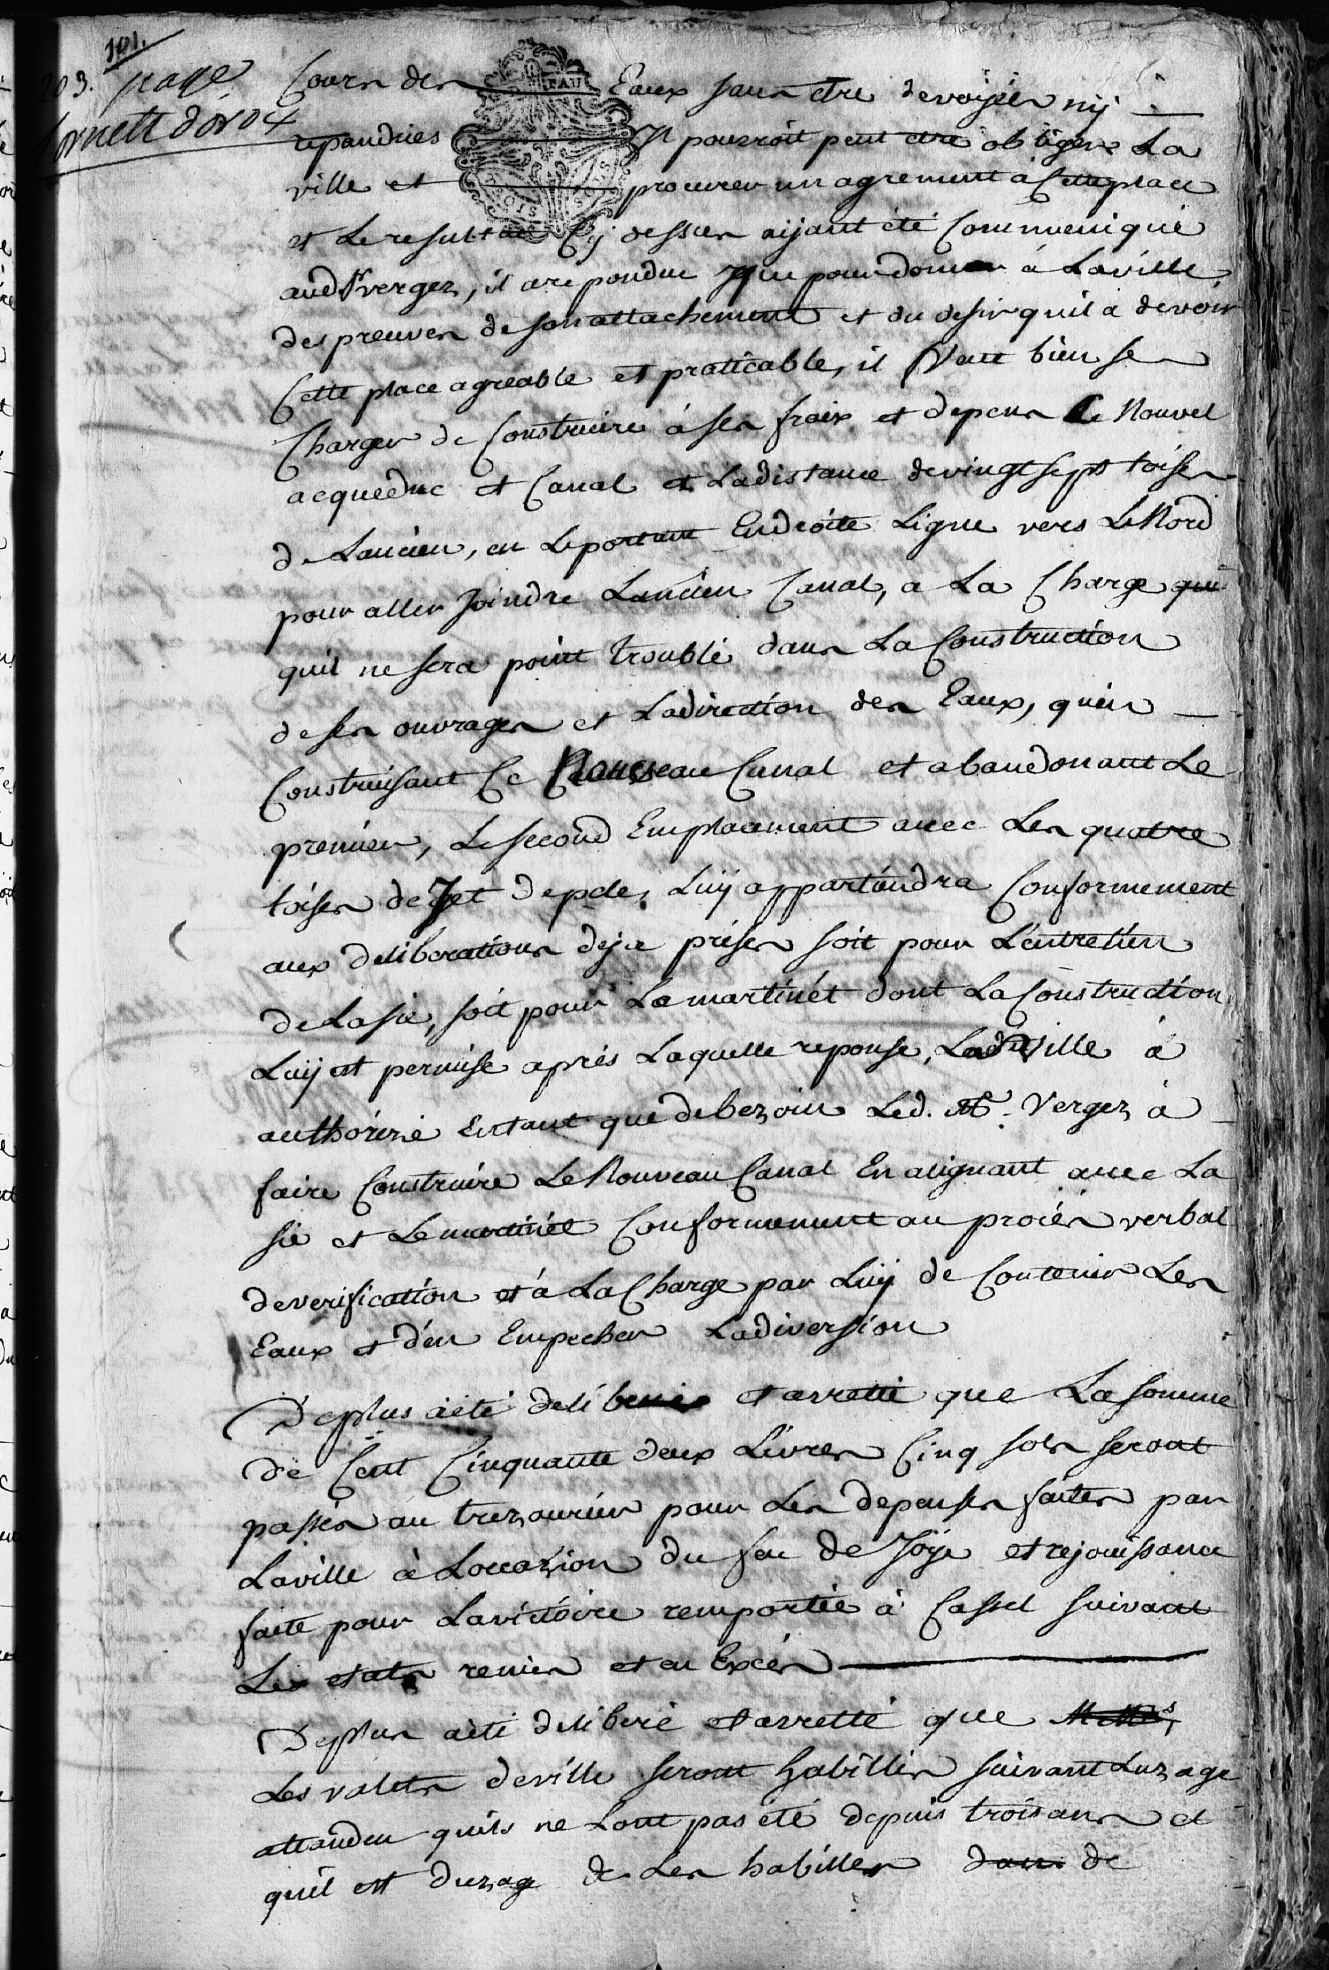 101.
203. page
Cours des Eaux sans etre devoyées nij
repandües Il pourroit peut etre obliger La
ville et procurer un agrement à Cette place
et Le resultat Cij dessus aijant été Communiqué
aud Sr vergez, il a repondu que pour donner à Laville
des preuves de son attachement et du desir quil a de voir
Cette place agreable et praticable, il Veut bien se
Charger de Construire à ses fraix et depens Le Nouvel
acqueduc et Canal et Ladistance de vingt sept toises
de Lancien, en Leportant Endroite Ligne vers LeNord
pour aller Joindre Lancien Canal, a La Charge qui
quil ne sera point troublé dans La Construction
de ses ouvrages et Ladirection des Eaux, quen
Construisant Ce Nouveau Canal et abandonant Le
premier, Le second Emplacement avec Les quatre
toises de Jet de pele, Luij appartiendra Conformement
aux deliberations deja prises soit pour Lentretien
de Lasie, soit pour Le martinét dont La Construction
Luij est permise aprés Laquelle reponse, Lad. Ville à
authorizé Entant que debezoin Led. Sr. Vergez à
faire Construire Le Nouveau Canal En alignant avec La
sie et Lemartinét Conformement au procés verbal
deverification et à La Charge par Luij de Contenir Les
Eaux et d'en Empecher Ladiversion
Deplus aété deliberé et arretté que La somme
de Cent Cinquante deux Livres Cinq sols seront
passés au trezourier pour Les depenses faites par
Laville à Loccazion du feu de Joÿe et rejouissance
faite pour Lavictoire remportée à Cassel suivant
Les etats remis et en Excés
Deplus aété deliberé et arretté que MMrs
Les valets deville seront habillés suivant Luzage
attandeu quils ne Lont pas été depuis trois ans et
quil est duzage de Les habiller dans de